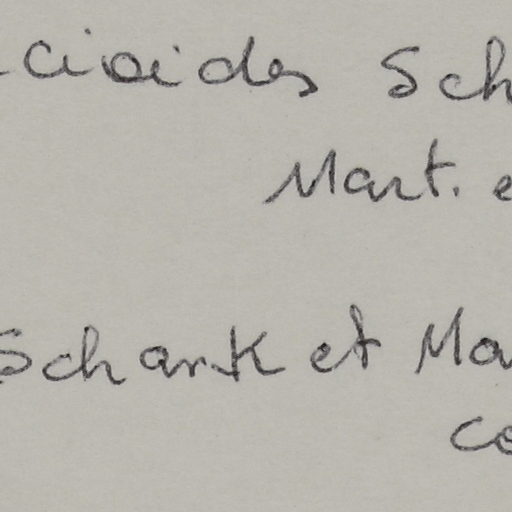 cioides Sch
Mart. e
Schank et Ma
co